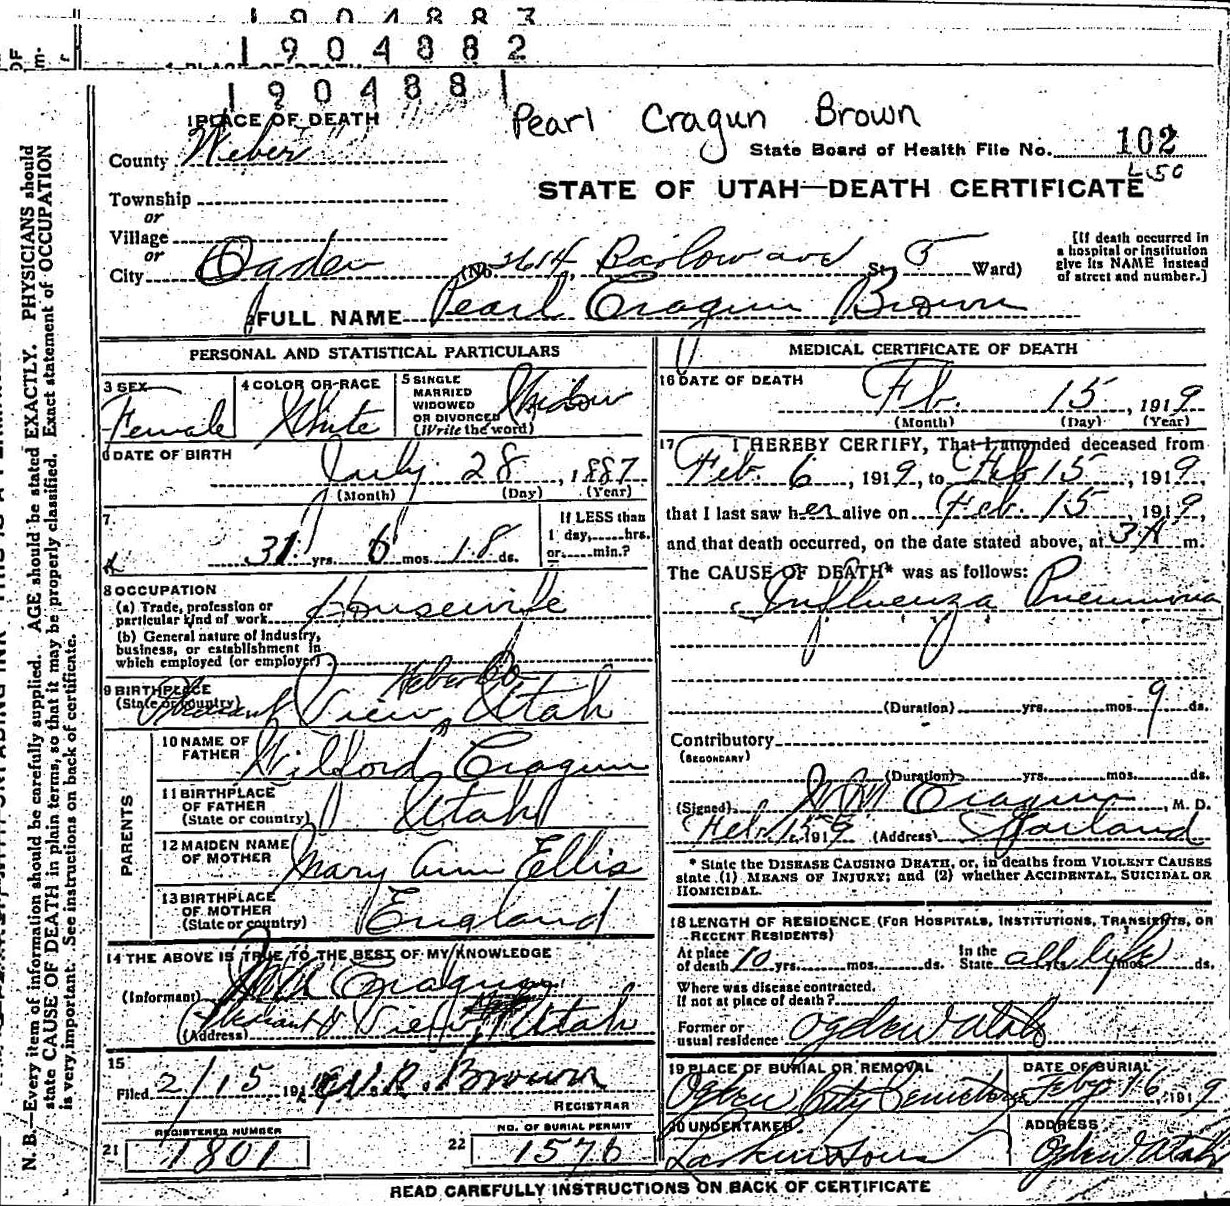 1904883
1904882
1 PLACE OF DEATH
1904881
Pearl Cragun Brown
1 PLACE OF DEATH
County Weber
State Board of Health File No. 102
L 50
STATE OF UTAH—DEATH CERTIFICATE
Township
or
Village
or
City Ogden (No. 2614 Barlow ave St; 5 Ward)
[If death occurred in
a hospital or institution
give its NAME instead
of street and number.]
FULL NAME Pearl Cragun Brown
PERSONAL AND STATISTICAL PARTICULARS
3 SEX
Female
4 COLOR OR RACE
White
5 SINGLE
MARRIED
WIDOWED
OR DIVORCED
(Write the word)
Widow
6 DATE OF BIRTH
July 28, 1887
(Month) (Day) (Year)
7
31 yrs. 6 mos. 18 ds.
If LESS than
1 day,......hrs.
or......min.?
8 OCCUPATION
(a) Trade, profession or
particular kind of work Housewife
(b) General nature of industry,
business, or establishment in
which employed (or employer)
9 BIRTHPLACE
(State or country)
Weber Co
Pleasant View, Utah
PARENTS
10 NAME OF
FATHER Wilford Cragun
11 BIRTHPLACE
OF FATHER
(State or country) Utah
12 MAIDEN NAME
OF MOTHER Mary Ann Ellis
13 BIRTHPLACE
OF MOTHER
(State or country) England
14 THE ABOVE IS TRUE TO THE BEST OF MY KNOWLEDGE
(Informant) Cragun
(Address) Pleasant View, Utah
15
Filed 2/15 191 Brown
REGISTRAR
21 REGISTERED NUMBER
1801
22 NO. OF BURIAL PERMIT
1576
MEDICAL CERTIFICATE OF DEATH
16 DATE OF DEATH
Feb. 15, 1919
(Month) (Day) (Year)
17 I HEREBY CERTIFY, That I attended deceased from
Feb. 6, 1919, to Feb 15, 1919,
that I last saw her alive on Feb. 15, 1919,
and that death occurred, on the date stated above, at 3 A m.
The CAUSE OF DEATH* was as follows:
Influenza Pneumonia
(Duration) yrs. mos. 9 ds.
Contributory
(SECONDARY)
(Duration) yrs. mos. ds.
(Signed) Cragun, M. D.
Feb 15, 1919 (Address) Garland
* State the DISEASE CAUSING DEATH, or, in deaths from VIOLENT CAUSES
state (1) MEANS OF INJURY; and (2) whether ACCIDENTAL, SUICIDAL OR
HOMICIDAL.
18 LENGTH OF RESIDENCE (FOR HOSPITALS, INSTITUTIONS, TRANSIENTS, OR
RECENT RESIDENTS)
At place
of death 10 yrs. mos. ds.
In the
State all life yrs. mos. ds.
Where was disease contracted,
if not at place of death?
Former or
usual residence Ogden Utah
19 PLACE OF BURIAL OR REMOVAL
Ogden City Cemetery
DATE OF BURIAL
Feby 16, 1919
20 UNDERTAKER
Larkin & Sons
ADDRESS
Ogden Utah
READ CAREFULLY INSTRUCTIONS ON BACK OF CERTIFICATE
N. B.—Every item of information should be carefully supplied. AGE should be stated EXACTLY. PHYSICIANS should
state CAUSE OF DEATH in plain terms, so that it may be properly classified. Exact statement of OCCUPATION
is very important. See instructions on back of certificate.